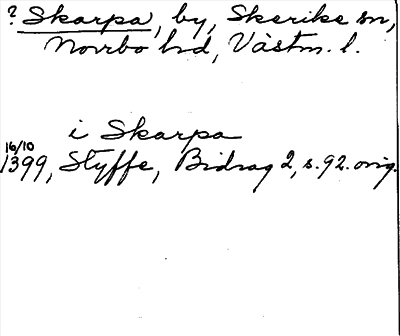 ? Skarpa, by, Skerike sn,
Norrbo hd, Västm. l.
i Skarpa
16/10
1399, Styffe, Bidrag 2, s. 92. orig.